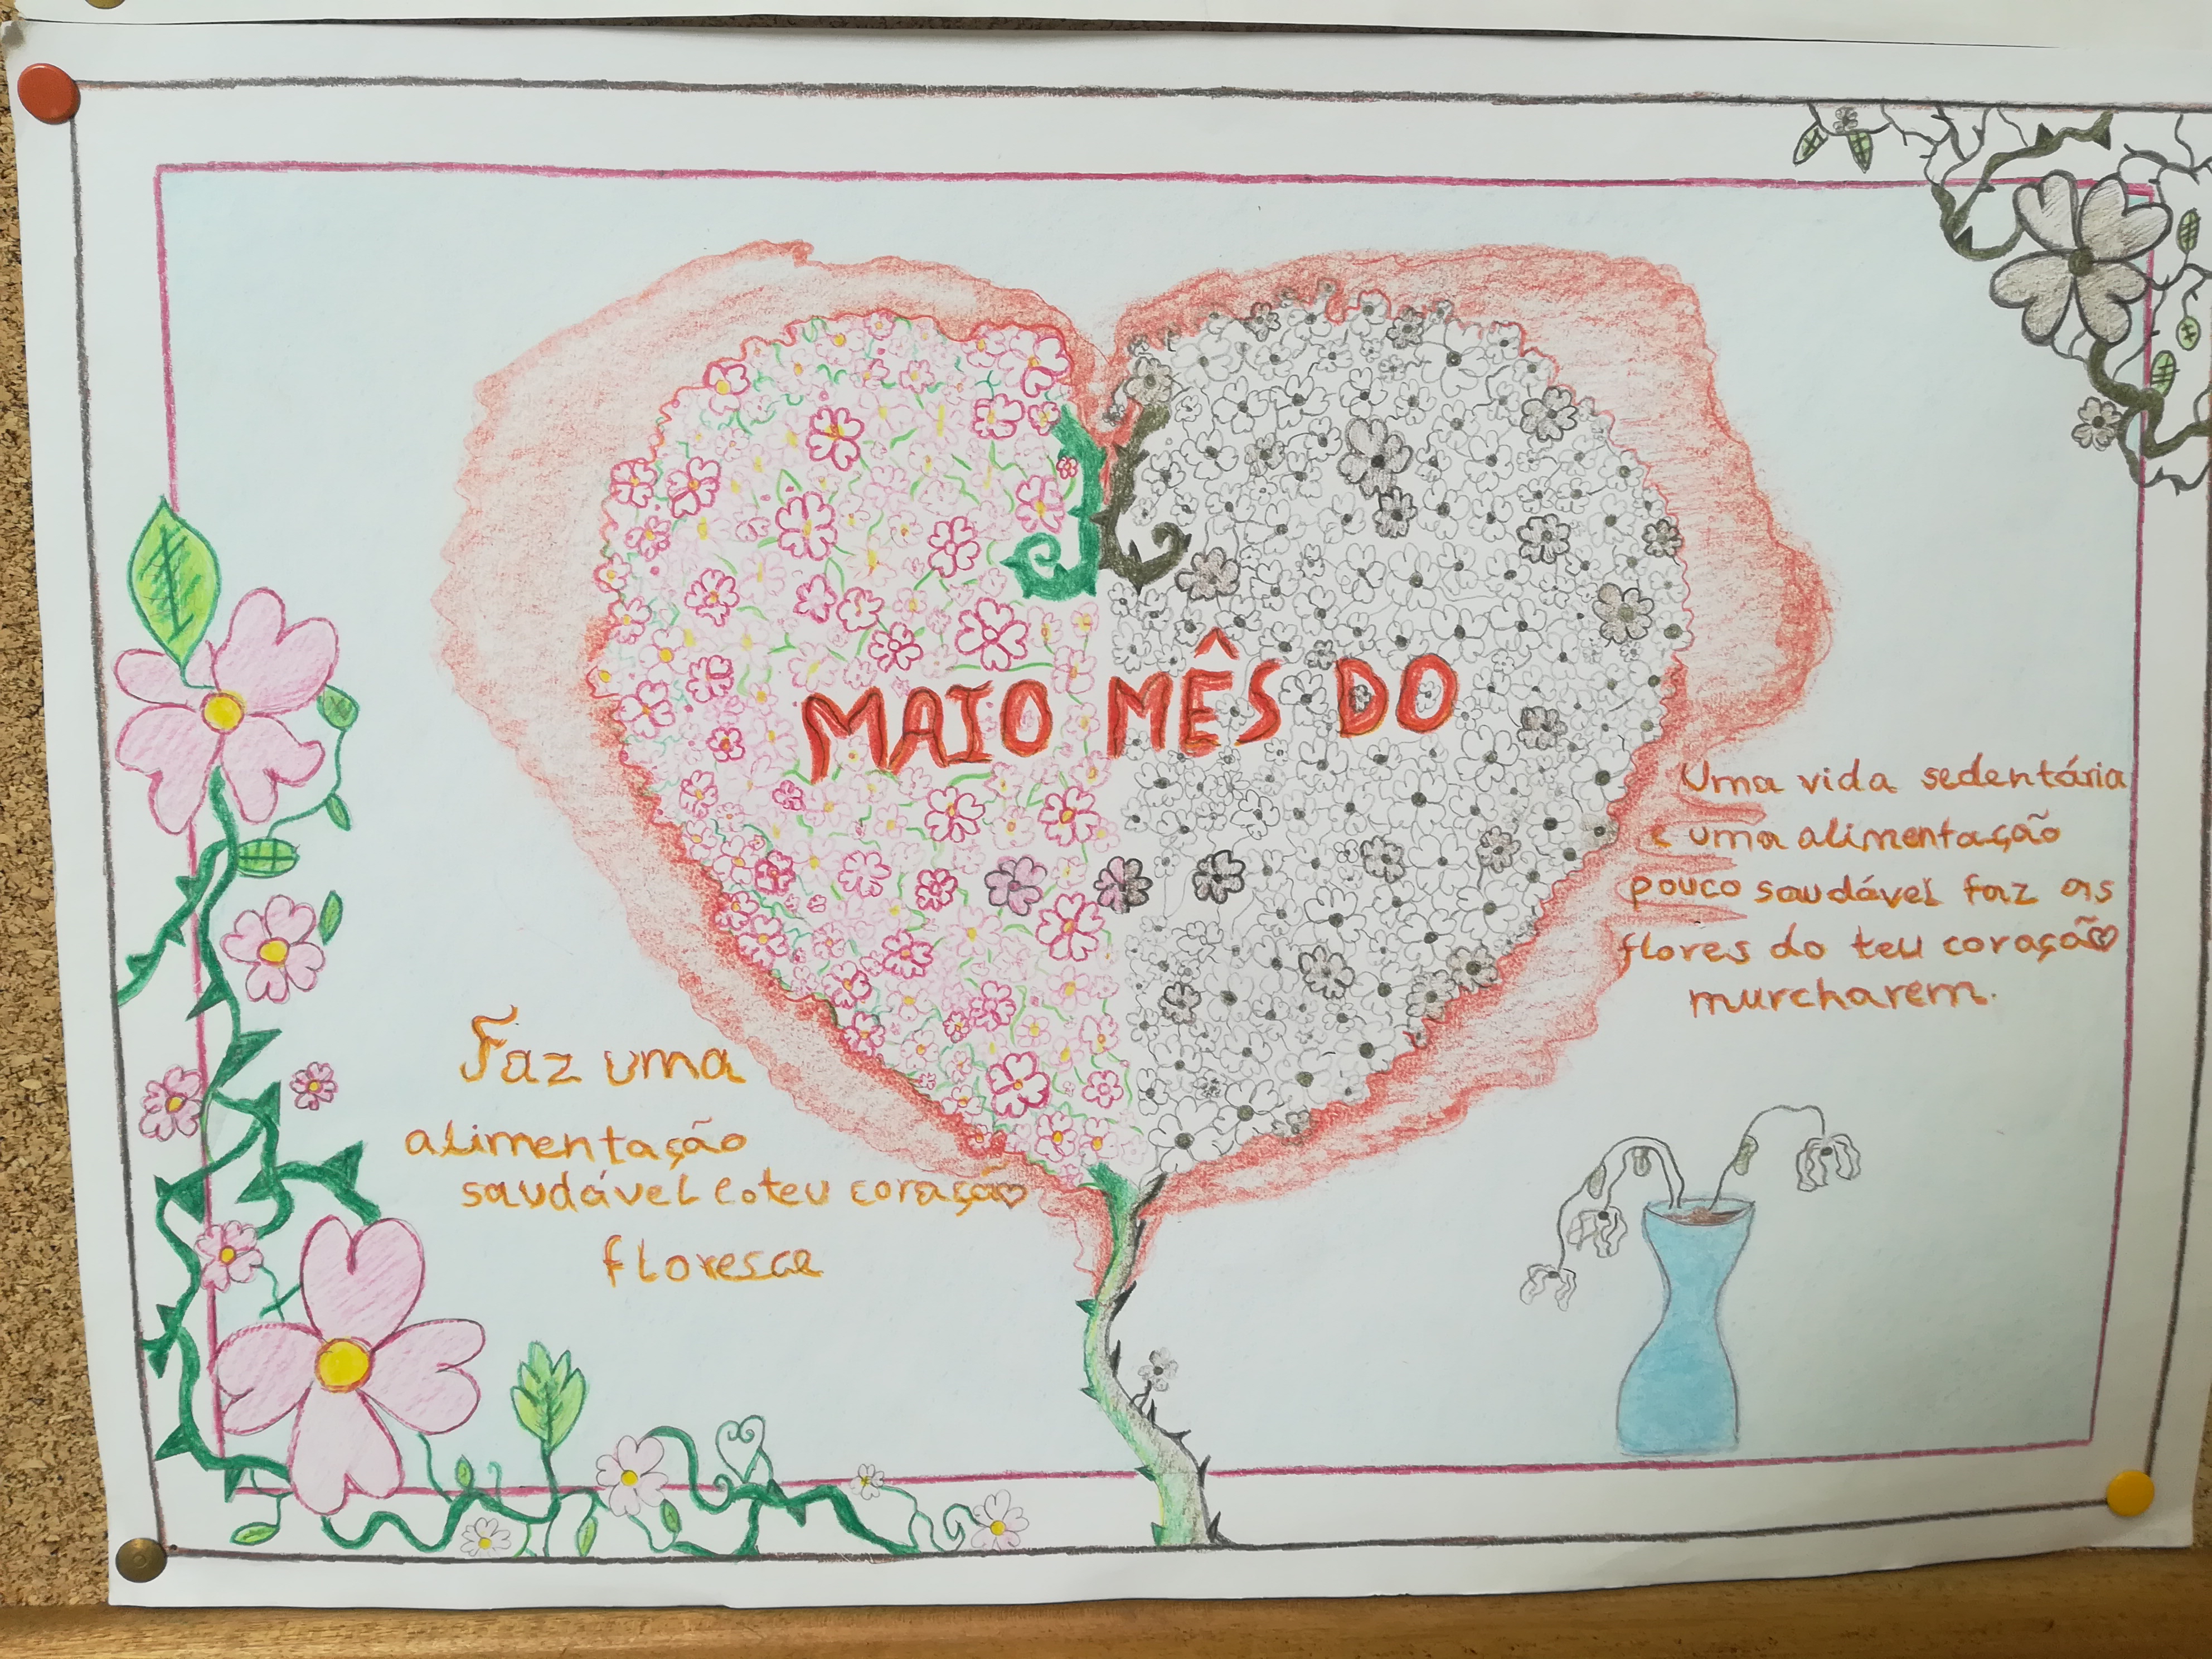 MAIO MÊS DO
Uma vida sedentária
e uma alimentação
pouco saudável faz as
flores do teu coração
murcharem.
Faz uma
alimentação
saudável e o teu coração
floresce